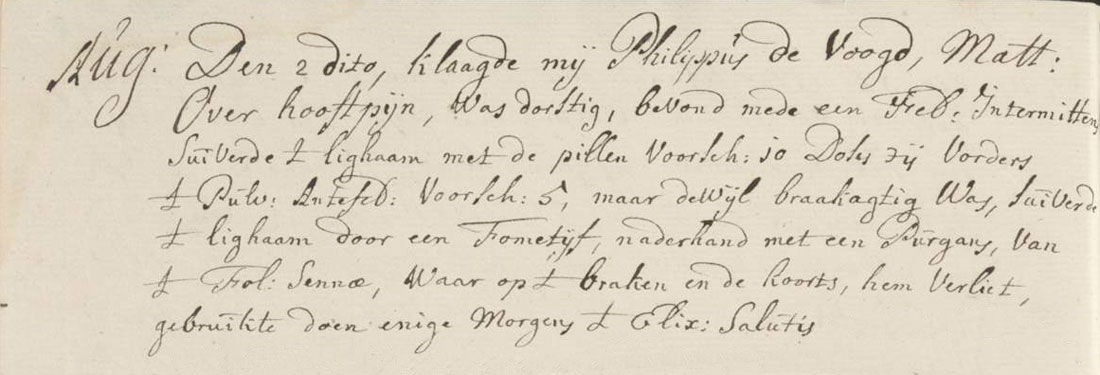 Aug: Den 2 dito, klaagde mij Philippus de Voogd, Matt:
Over hooftpijn, Was dorstig, bevond mede een Feb: Intermittens
Suiverde t lighaam met de pillen Voorsch: 10 Dosis zij Vorders
t Pulv: Antefeb: Voorsch: 5, maar dewijl braakagtig Was, Suiverde
t lighaam door een Fometijf, naderhand met een Purgans, Van
t Fol: Sennæ, Waar op t braken en de koorts, hem Verliet,
gebruikte doen enige Morgens t Elix: Salutis